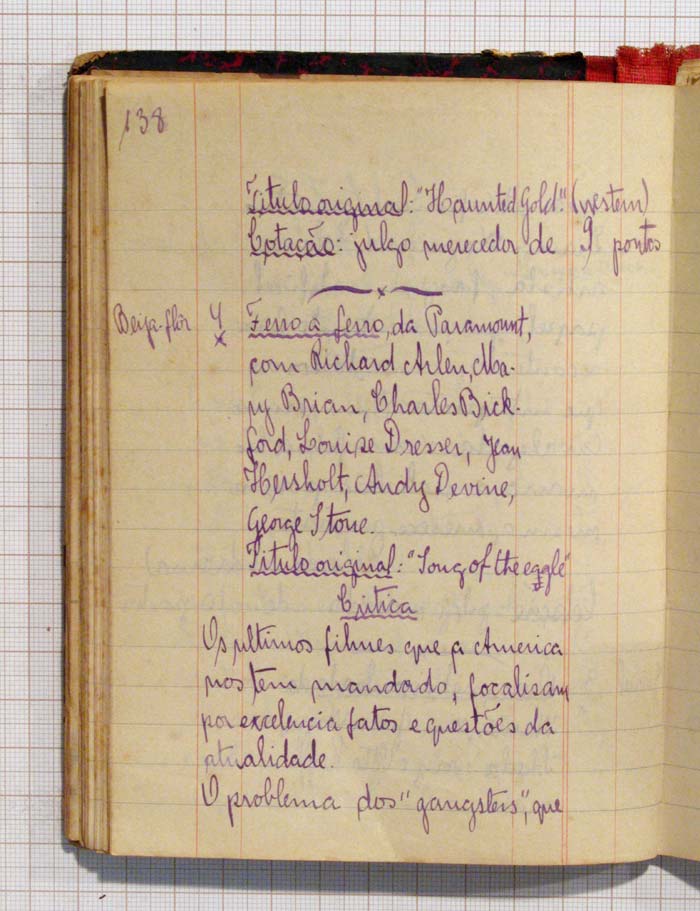 138
Titulo original: "Haunted Gold" (western)
Cotação: julgo merecedor de 9 pontos
Beija-flôr 4 Ferro a ferro, da Paramount,
x
com Richard Arlen, Ma-
ry Brian, Charles Bick-
ford, Louise Dresser, Jean
Hersholt, Andy Devine,
George Stone.
Titulo original: "Song of the eagle"
Critica
Os ultimos filmes que a America
nos tem mandado, focalisam
por excelencia fatos e questões da
atualidade.
O problema dos "gangsters", que